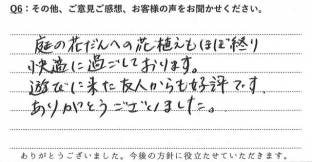 Q6：その他、ご意見ご感想、お客様の声をお聞かせください。
庭の花だんへの花植えもほぼ終り
快適に過ごしております。
遊びに来た友人からも好評です。
ありがとうございました。
ありがとうございました。今後の方針に役立たせていただきます。